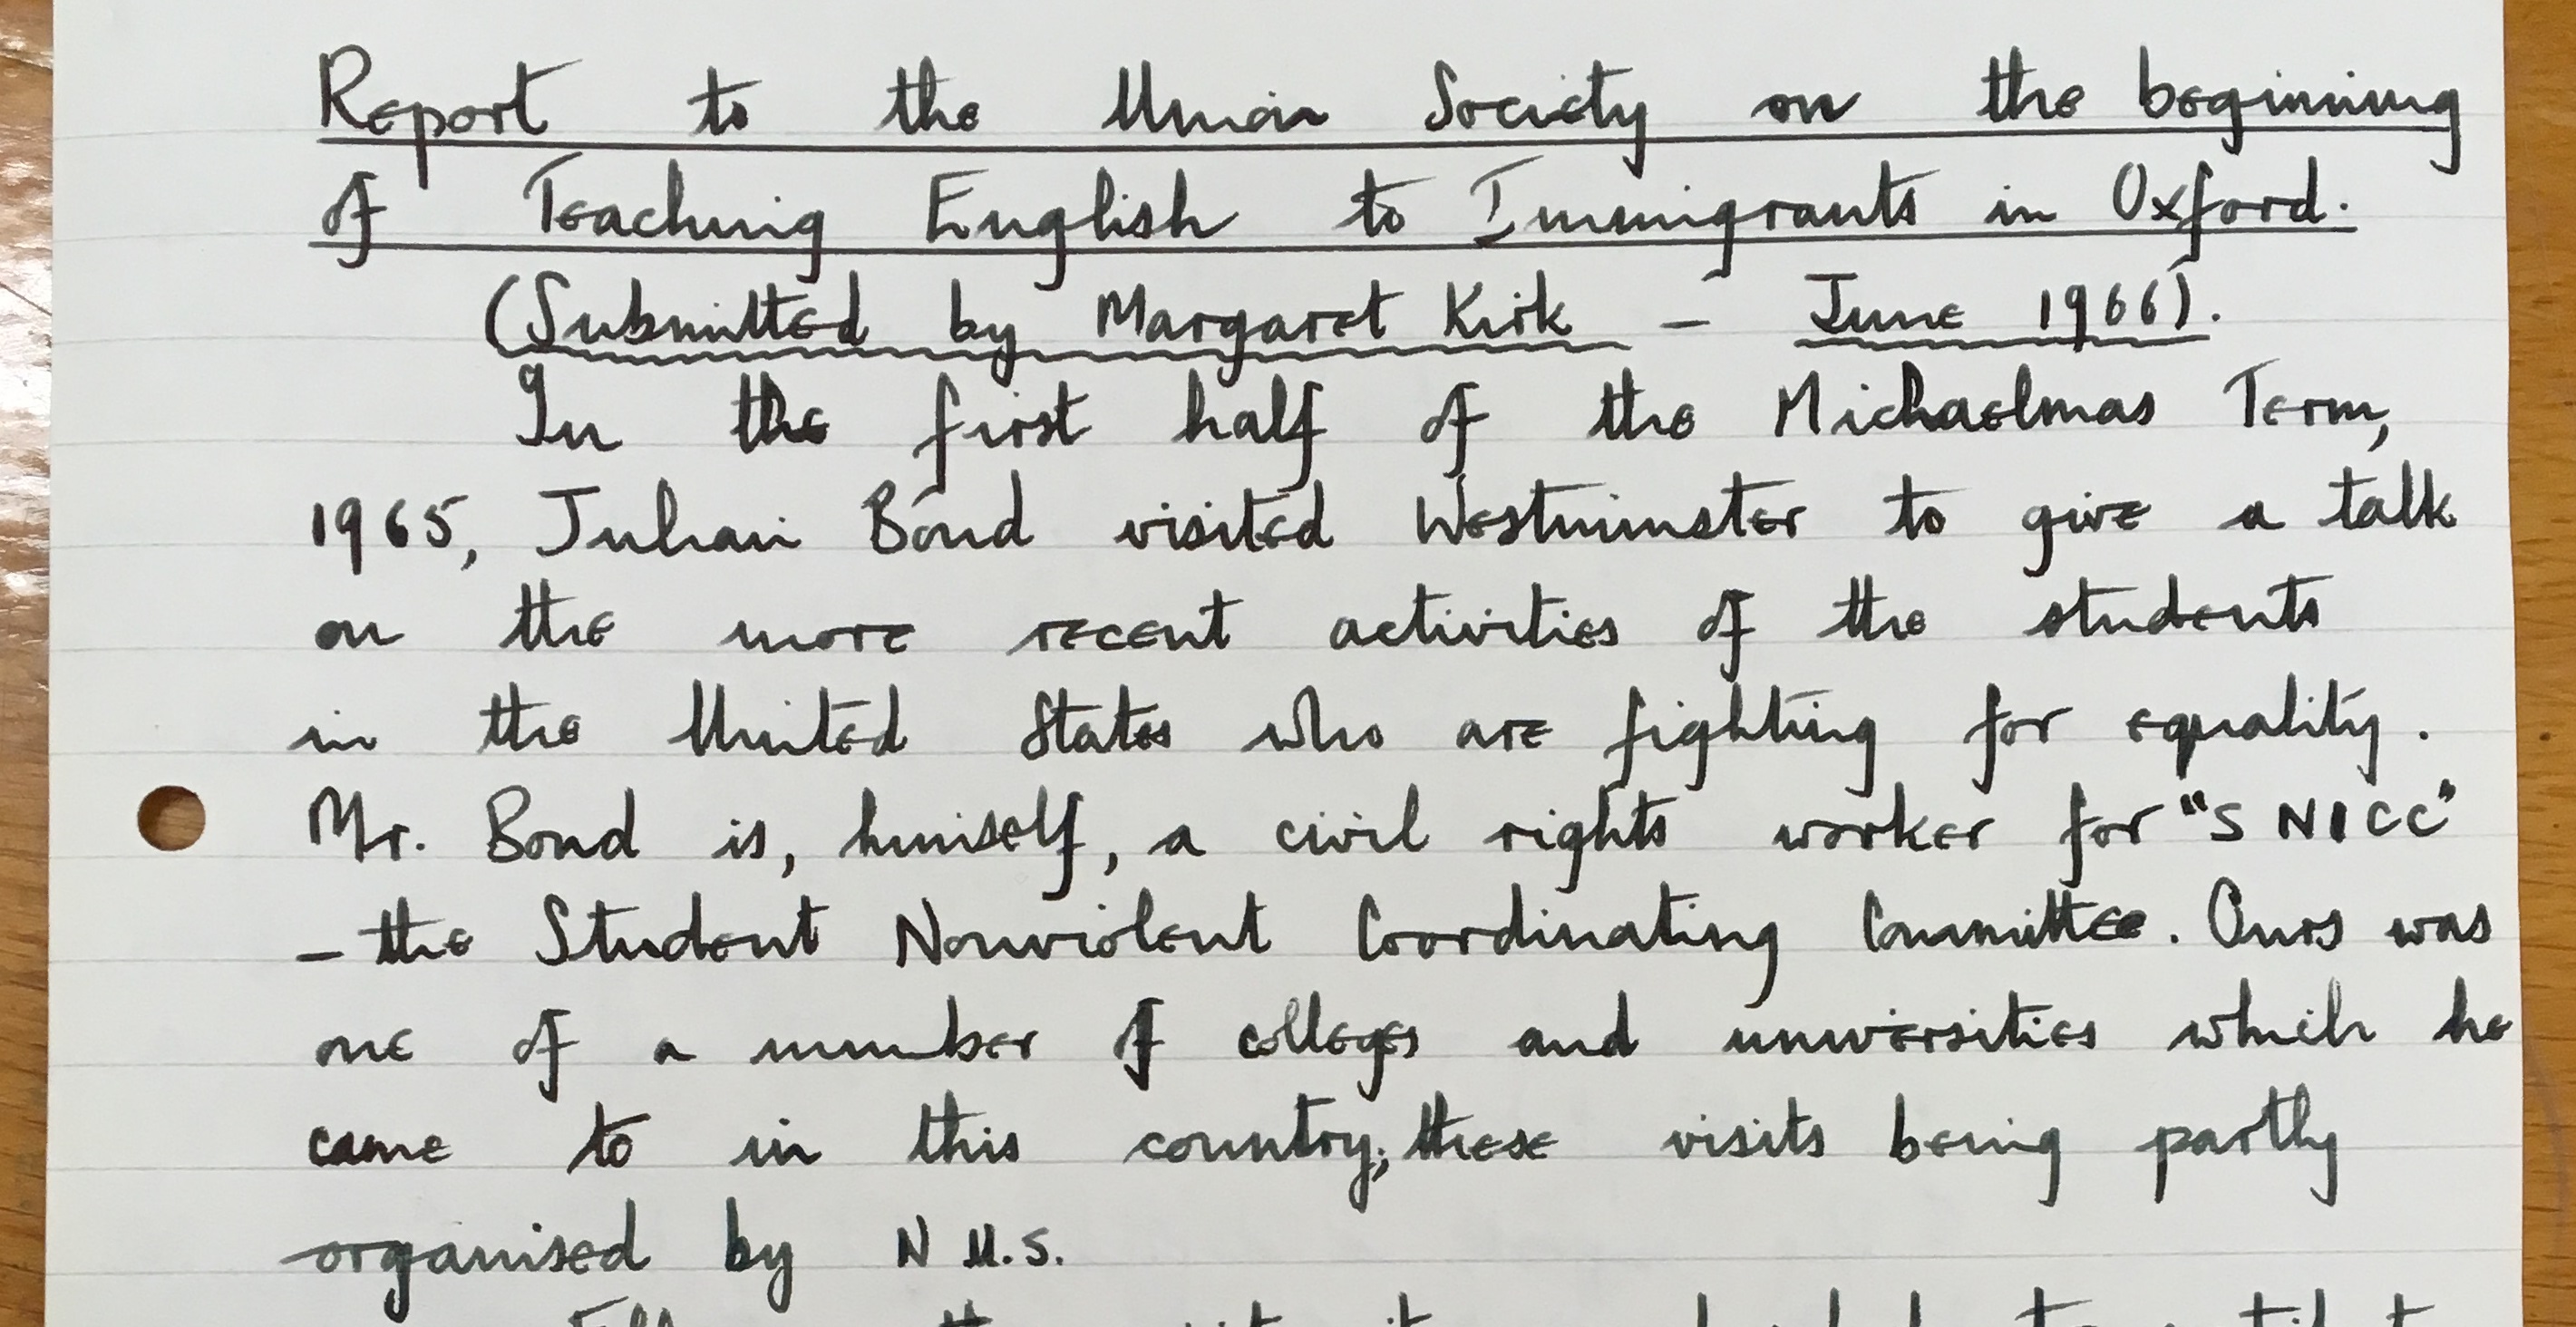 Report to the Union Society on the beginning
of Teaching English to Immigrants in Oxford.
(Submitted by Margaret Kirk - June 1966).
In the first half of the Michaelmas Term,
1965, Julian Bond visited Westminster to give a talk
on the more recent activities of the students
in the United States who are fighting for equality.
Mr. Bond is, himself, a civil rights worker for "SNICC"
- the Student Nonviolent Coordinating Committee. Ours was
one of a number of colleges and universities which he
came to in this country; these visits being partly
organised by N U.S.